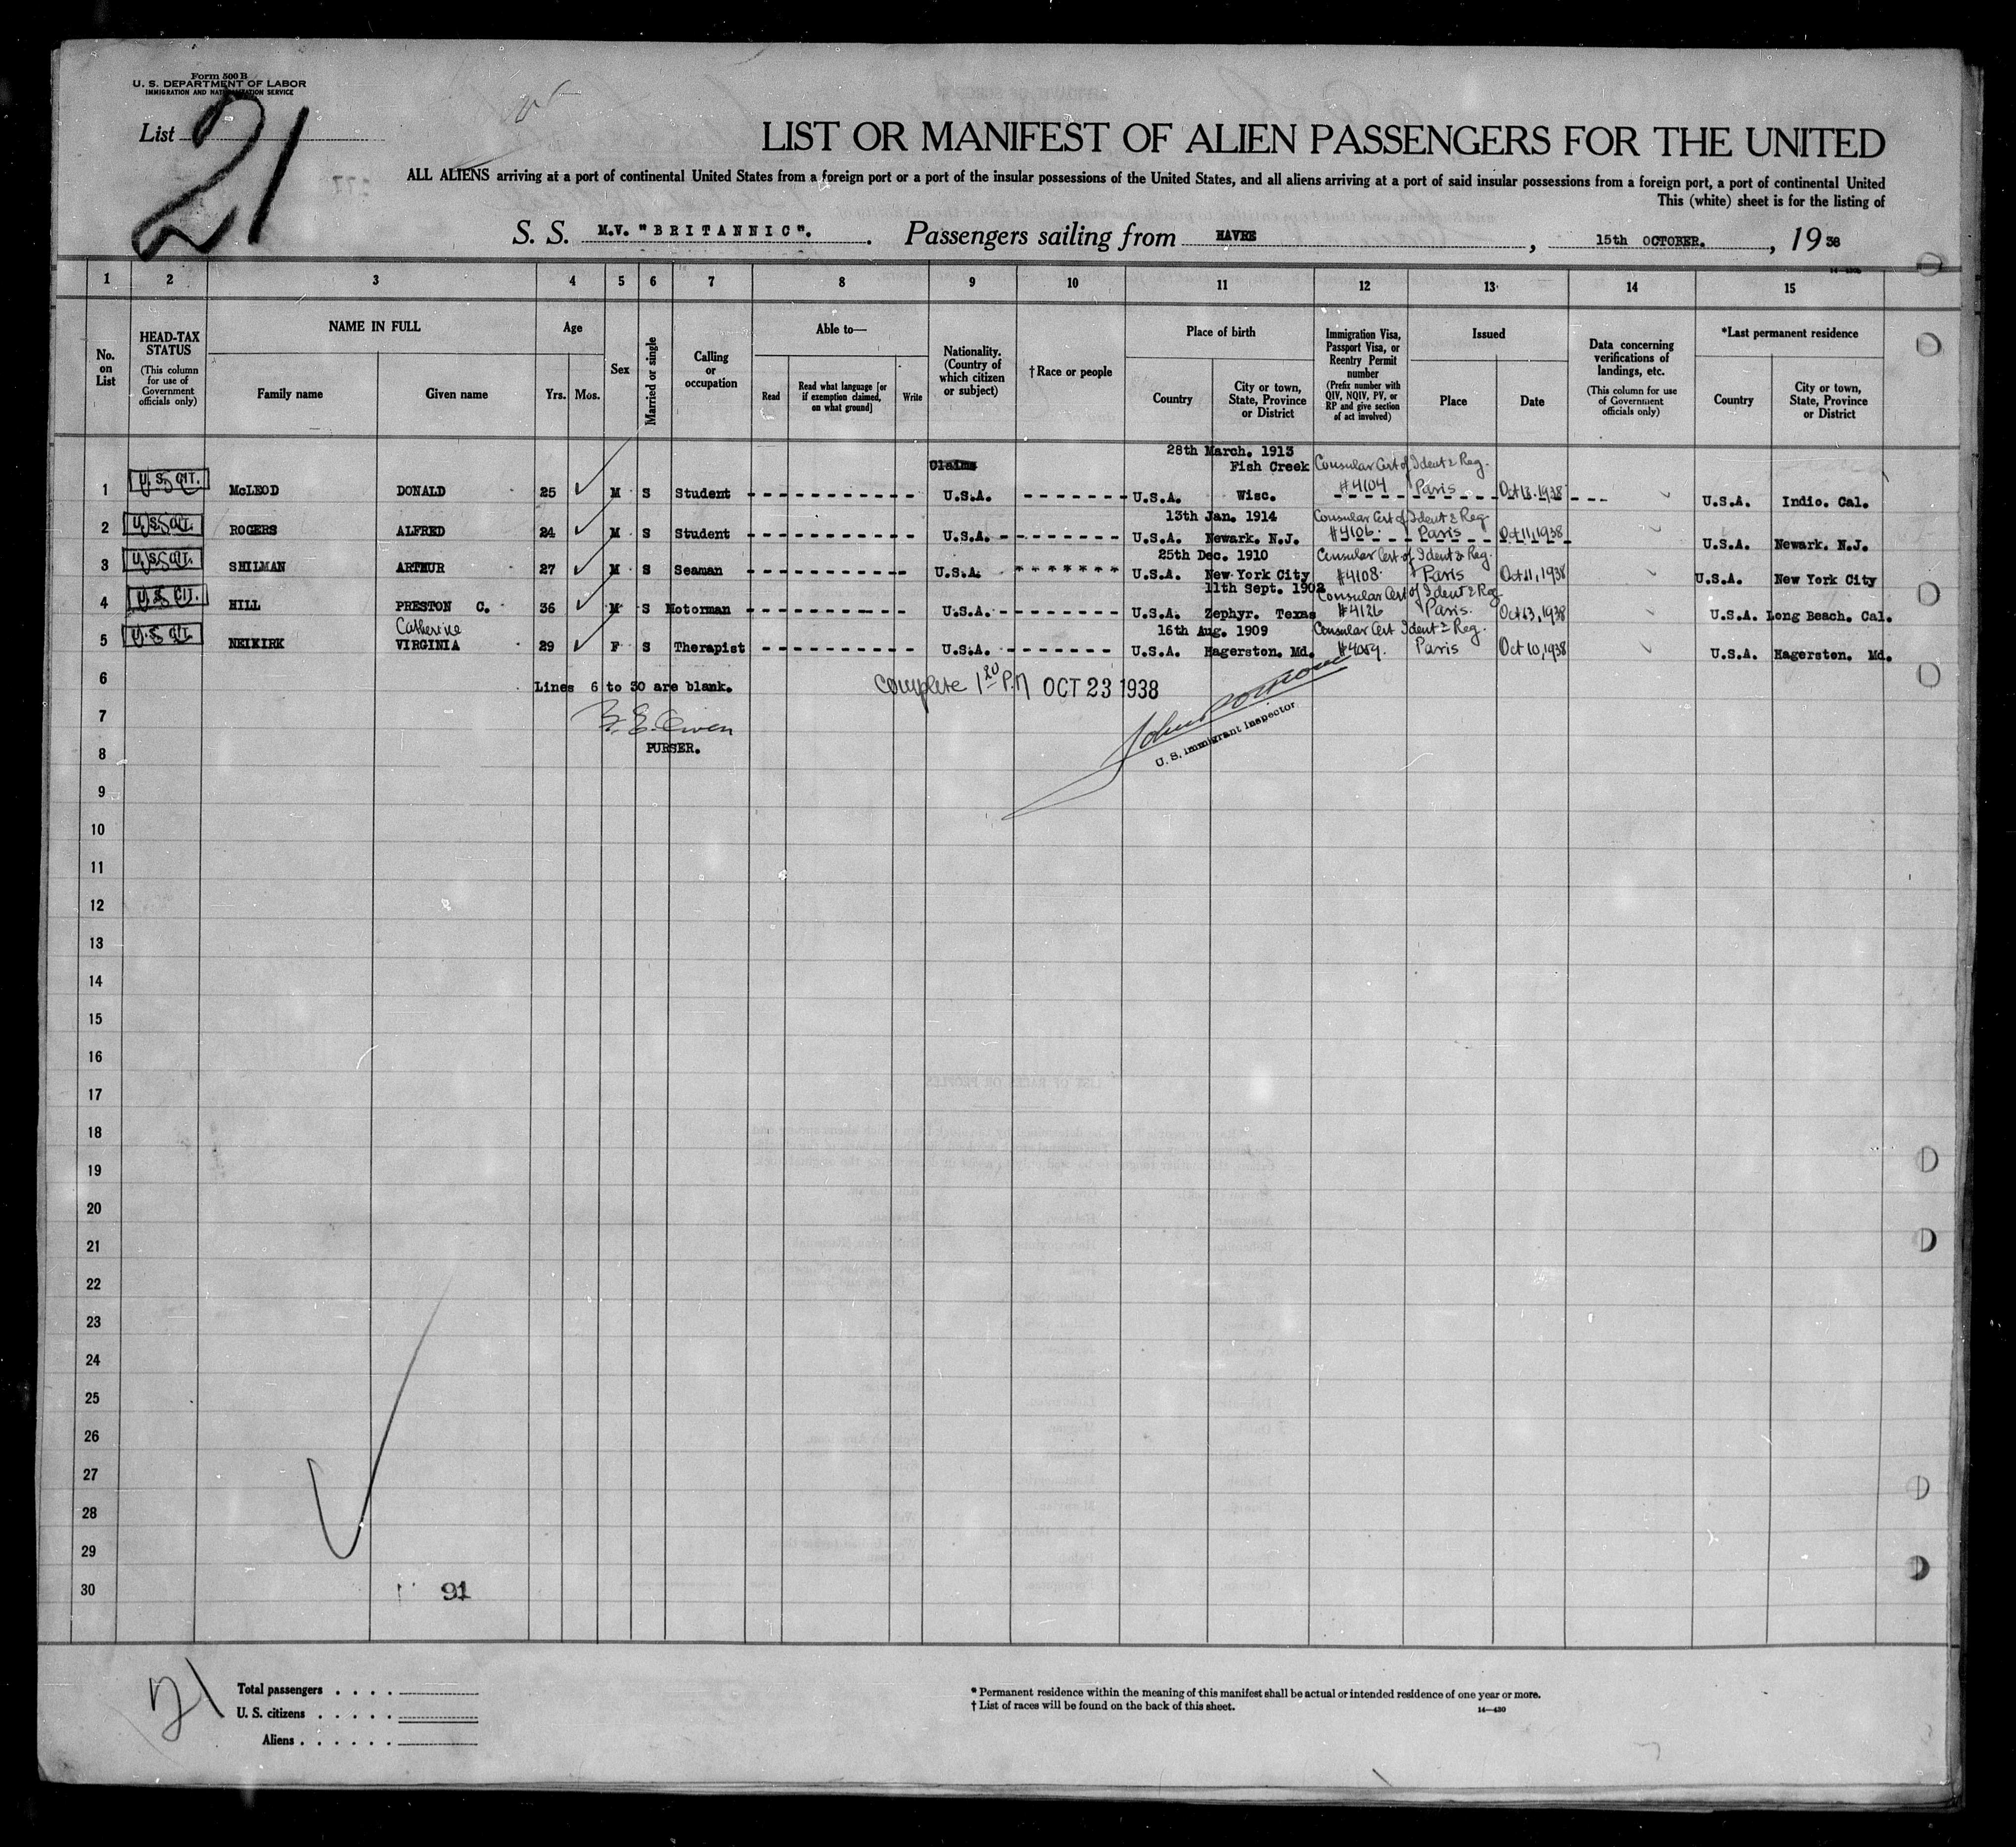 Form 500 B
U. S. DEPARTMENT OF LABOR
IMMIGRATION AND NATURALIZATION SERVICE
List 21
LIST OR MANIFEST OF ALIEN PASSENGERS FOR THE UNITED
ALL ALIENS arriving at a port of continental United States from a foreign port or a port of the insular possessions of the United States, and all aliens arriving at a port of said insular possessions from a foreign port, a port of continental United
This (white) sheet is for the listing of
S. S. M.V. "BRITANNIC". Passengers sailing from HAVRE, 15th OCTOBER., 19 38
1 2 3 4 5 6 7 8 9 10 11 12 13 14 15
No. on List
HEAD-TAX STATUS (This column for use of Government officials only)
NAME IN FULL
Family name Given name
Age
Yrs. Mos.
Sex
Married or single
Calling or occupation
Able to—
Read Read what language [or if exemption claimed, on what ground] Write
Nationality. (Country of which citizen or subject)
†Race or people
Place of birth
Country City or town, State, Province or District
Immigration Visa, Passport Visa, or Reentry Permit number (Prefix number with QIV, NQIV, PV, or RP and give section of act involved)
Issued
Place Date
Data concerning verifications of landings, etc. (This column for use of Government officials only)
*Last permanent residence
Country City or town, State, Province or District
28th March. 1913
Claims Fish Creek Consular Cert of Ident & Reg.
1 U.S. CIT. McLEOD DONALD 25 M S Student U.S.A. U.S.A. Wisc. #4104 Paris Oct 13. 1938 U.S.A. Indio. Cal.
13th Jan. 1914 Consular Cert of Ident & Reg
2 U.S. CIT. ROGERS ALFRED 24 M S Student U.S.A. U.S.A. Newark. N.J. #4106. Paris Oct 11, 1938 U.S.A. Newark. N.J.
25th Dec. 1910 Consular Cert of Ident & Reg.
3 U.S. CIT. SHILMAN ARTHUR 27 M S Seaman U.S.A. ******* U.S.A. New York City #4108. Paris Oct 11, 1938 U.S.A. New York City
11th Sept. 1902 Consular Cert of Ident & Reg
4 U.S. CIT. HILL PRESTON C. 36 M S Motorman U.S.A. U.S.A. Zephyr. Texas #4126 Paris. Oct 13, 1938 U.S.A. Long Beach. Cal.
Catherine 16th Aug. 1909 Consular Cert Ident & Reg.
5 U.S. CIT. NEIKIRK VIRGINIA 29 F S Therapist U.S.A. U.S.A. Hagerston. Md. #4059. Paris Oct 10, 1938 U.S.A. Hagerston. Md.
6 Lines 6 to 30 are blank. Complete 1 20 P.M OCT 23 1938
7
U. S. Immigrant Inspector
PURSER.
8
9
10
11
12
13
14
15
16
17
18
19
20
21
22
23
24
25
26
27
28
29
30 91
21
Total passengers . . . .
U. S. citizens . . . . .
Aliens . . . . . .
* Permanent residence within the meaning of this manifest shall be actual or intended residence of one year or more.
† List of races will be found on the back of this sheet.
14—430